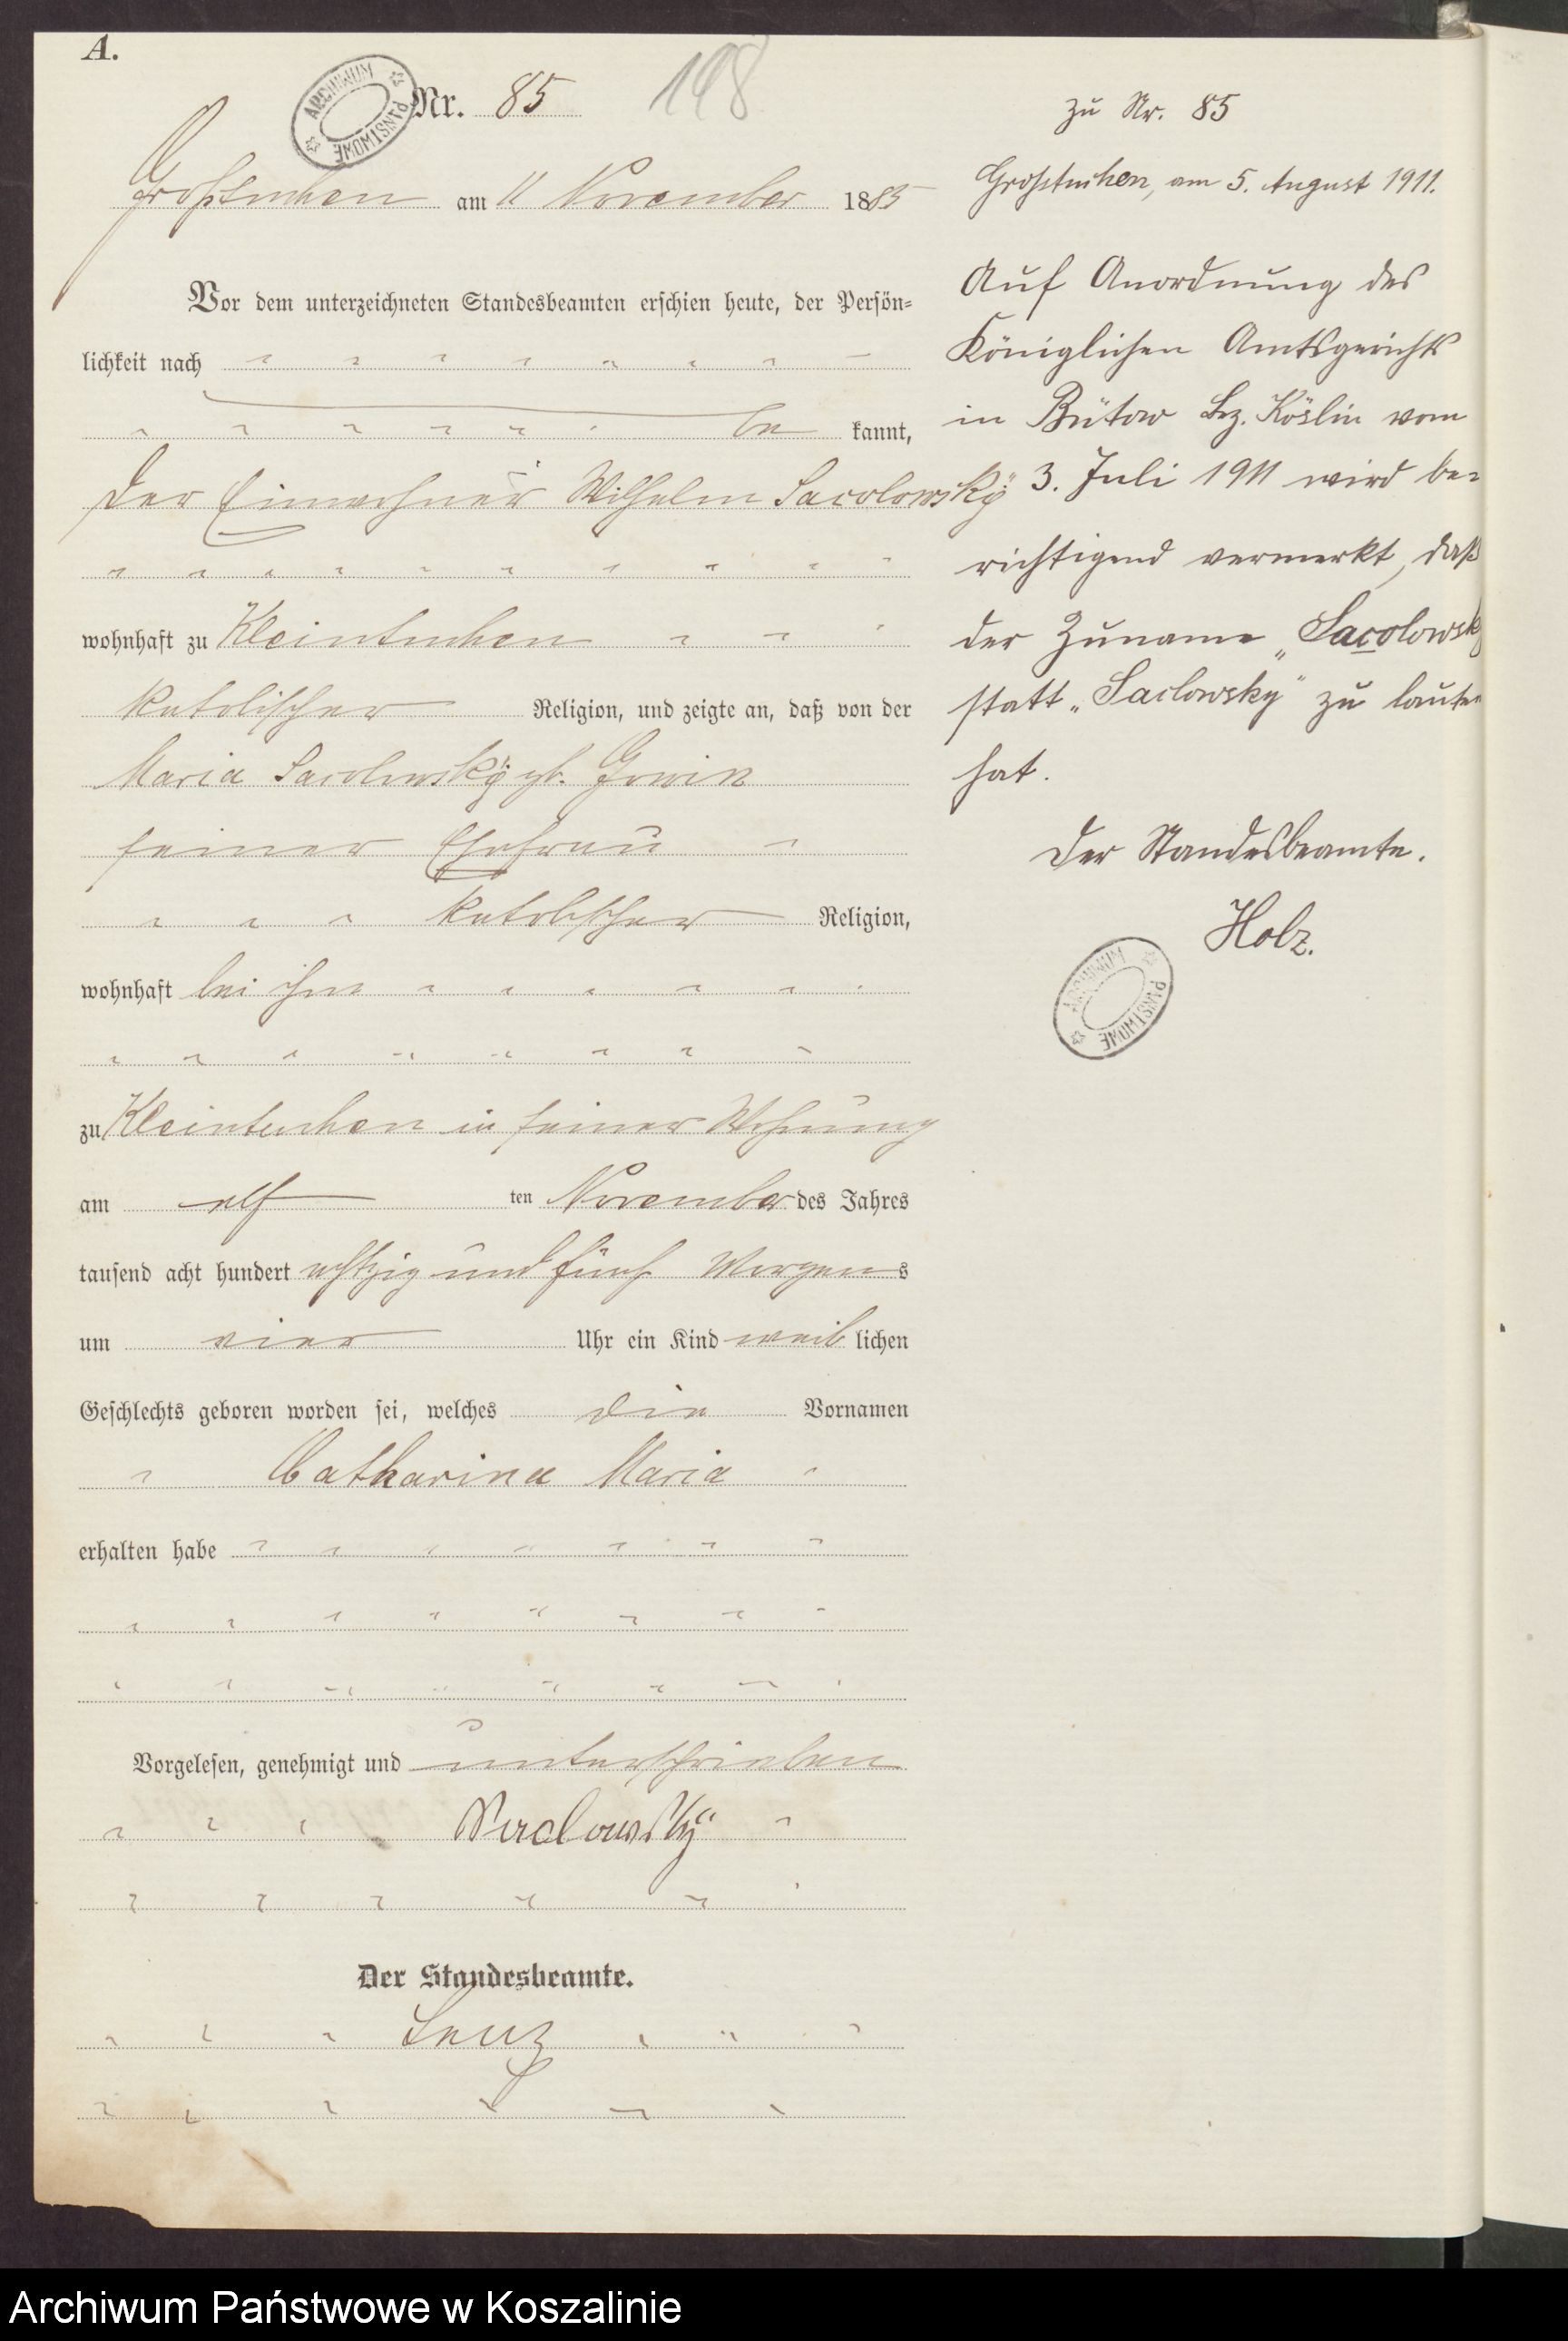 A.
ARCHIWUM PAŃSTWOWE
Nr. 85
198
Großtuchen am 11 November 1885
Vor dem unterzeichneten Standesbeamten erschien heute, der Persön-
lichkeit nach
be kannt,
der Einwohner Wilhelm Sacolowskÿ
wohnhaft zu Kleintuchen
katolischer Religion, und zeigte an, daß von der
Maria Sacolowskÿ gb. Gowin
seiner Ehefrau
katolischer Religion,
wohnhaft bei ihm
zu Kleintuchen in seiner Wohnung
am elf ten November des Jahres
tausend acht hundert achtzig und fünf Morgens
um vier Uhr ein Kind weib lichen
Geschlechts geboren worden sei, welches die Vornamen
Catharina Maria
erhalten habe
Vorgelesen, genehmigt und unterschrieben
Saclowskÿ
Der Standesbeamte.
Lenz
zu Nr. 85
Großtuchen, am 5. August 1911.
Auf Anordnung des
Königlichen Amtsgerichts
in Bütow Bez. Köslin vom
3. Juli 1911 wird be-
richtigend vermerkt, daß
der Zuname „Sacolowsky
statt „Saclowsky" zu lauten
hat.
Der Standesbeamte.
Holz.
ARCHIWUM PAŃSTWOWE
Archiwum Państwowe w Koszalinie